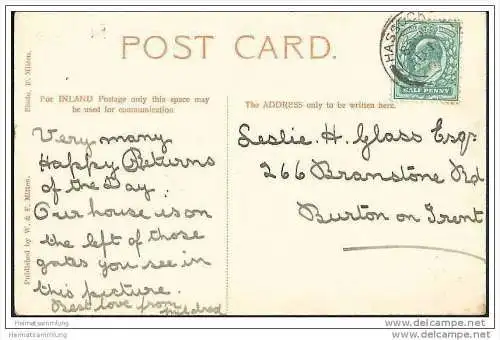 POST CARD.
HASSOC
HALF PENNY
Photo, D. Mitten.
Published by W. & F. Mitten.
For INLAND Postage only this space may
be used for communication
The ADDRESS only to be written here.
Very many
Happy Returns
of the Day.
Our house is on
the left of those
gates you see in
this picture.
Best love from
Mildred
Leslie. H. Glass Esqr
266 Branstone Rd
Burton on Trent
Heimatsammlung
Heimatsammlung
www.delcampe.net